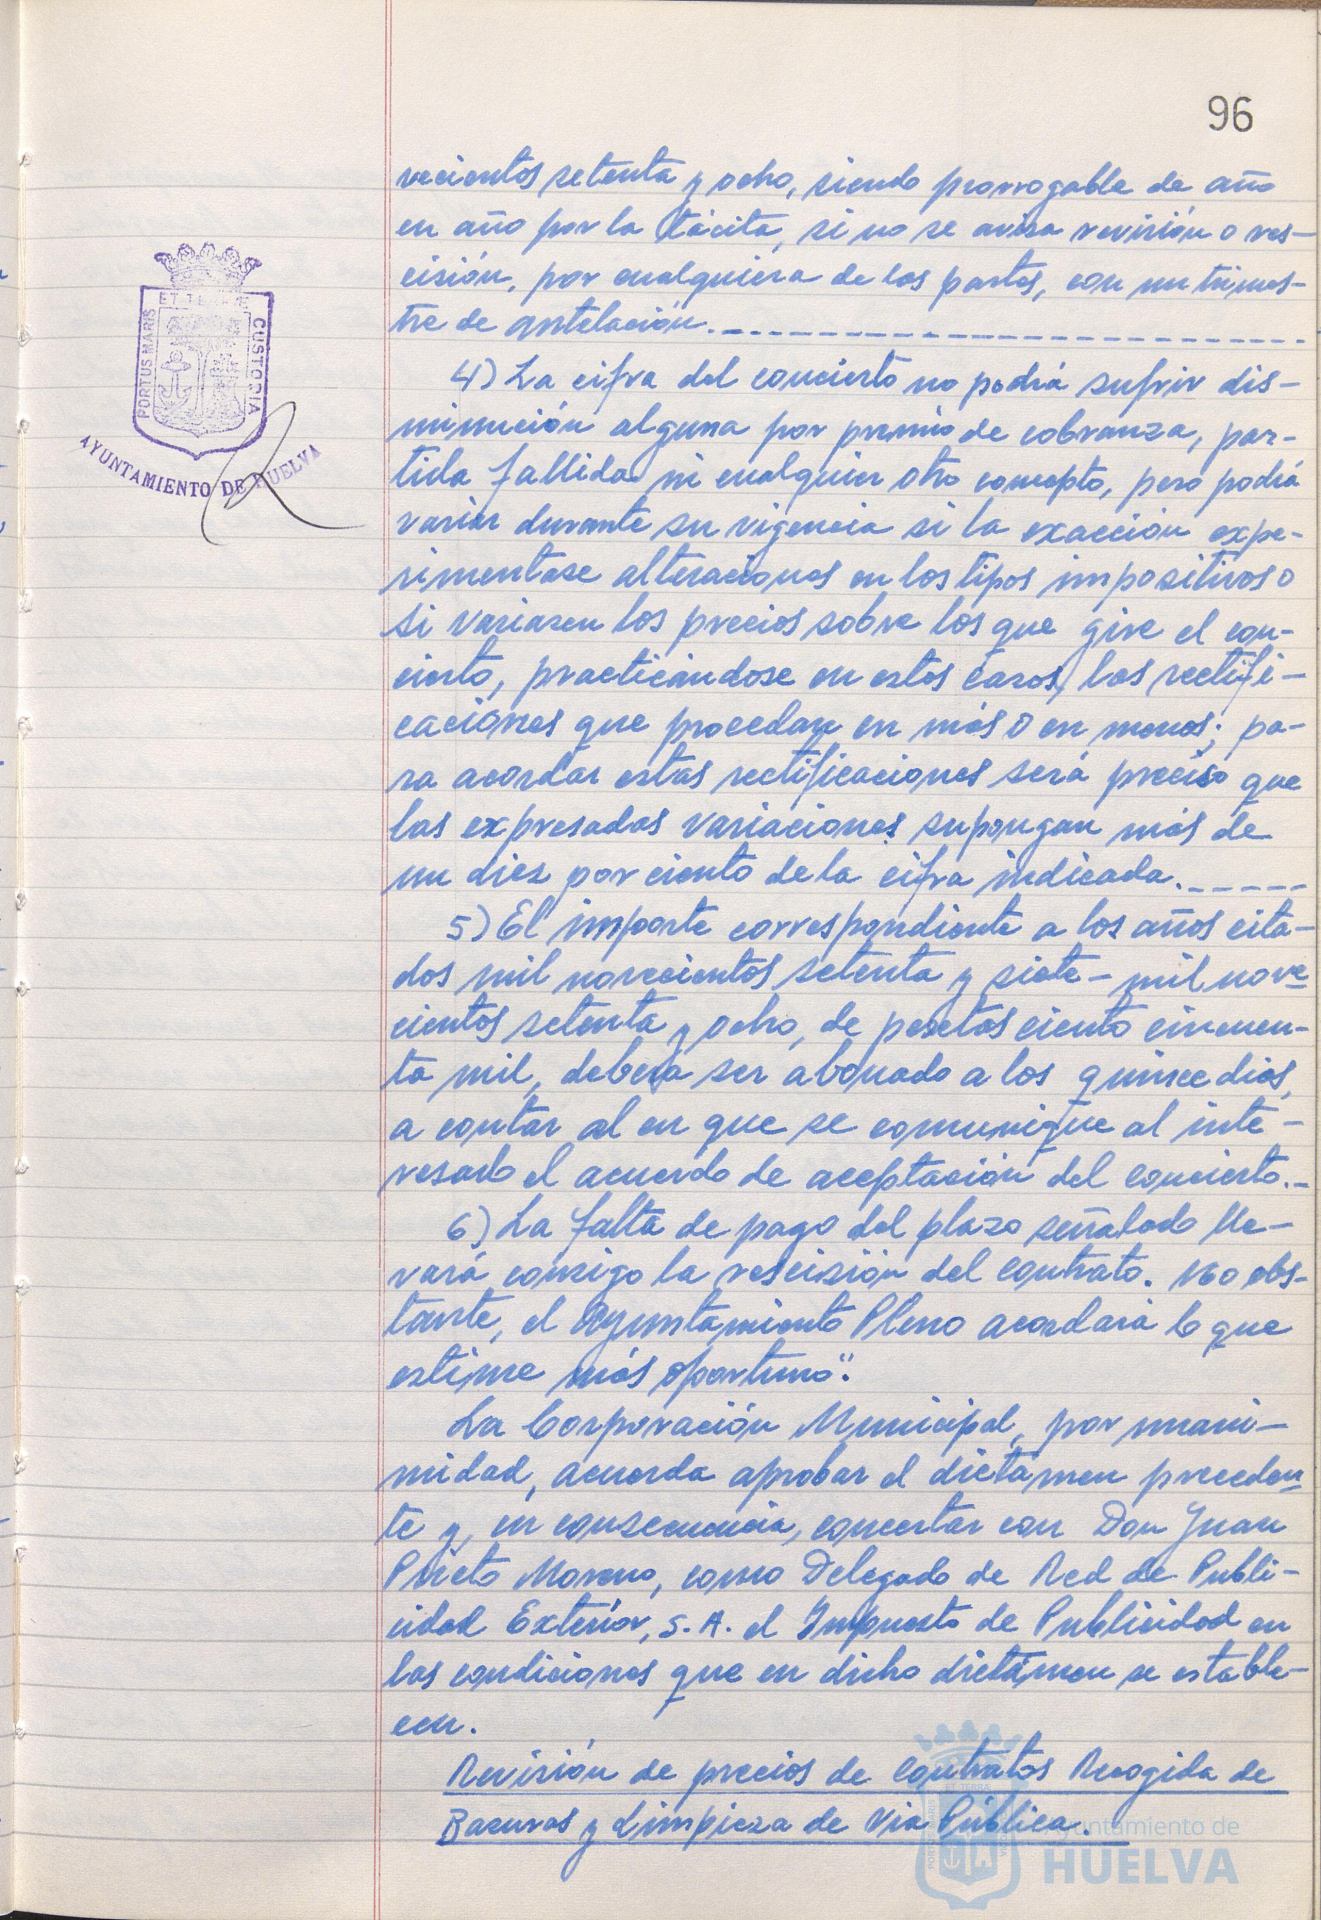 96
vecientos setenta y ocho, siendo prorrogable de año
en año por la tácita, si no se avisa revisión o res-
cisión, por cualquiera de las partes, con un trimes-
tre de antelación.
ET TERRAE
PORTUS MARIS
CUSTODIA
AYUNTAMIENTO DE HUELVA
4) La cifra del concierto no podrá sufrir dis-
minución alguna por premio de cobranza, par-
tida fallida ni cualquier otro concepto, pero podrá
variar durante su vigencia si la exacción expe-
rimentase alteraciones en los tipos impositivos o
si variasen los precios sobre los que gire el con-
cierto, practicándose en estos casos, las rectifi-
caciones que procedan en más o en menos; pa-
ra acordar estas rectificaciones será preciso que
las expresadas variaciones supongan más de
un diez por ciento de la cifra indicada.
5) El importe correspondiente a los años cita-
dos mil novecientos setenta y siete - mil nove-
cientos setenta y ocho, de pesetas ciento cincuen-
ta mil, deberá ser abonado a los quince dias,
a contar al en que se comunique al inte-
resado el acuerdo de aceptación del concierto.-
6) La falta de pago del plazo señalado lle-
vará consigo la rescisión del contrato. No obs-
tante, el Ayuntamiento Pleno acordará lo que
estime más oportuno".
La Corporación Municipal, por unani-
midad, acuerda aprobar el dictámen preceden-
te y, en consecuencia, concertar con Don Juan
Prieto Moreno, como Delegado de Red de Publi-
cidad Exterior, S. A. el Impuesto de Publicidad en
las condiciones que en dicho dictámen se estable-
cen.
Revisión de precios de Contratos Recogida de
Basuras y Limpieza de Via Pública.
Ayuntamiento de
HUELVA